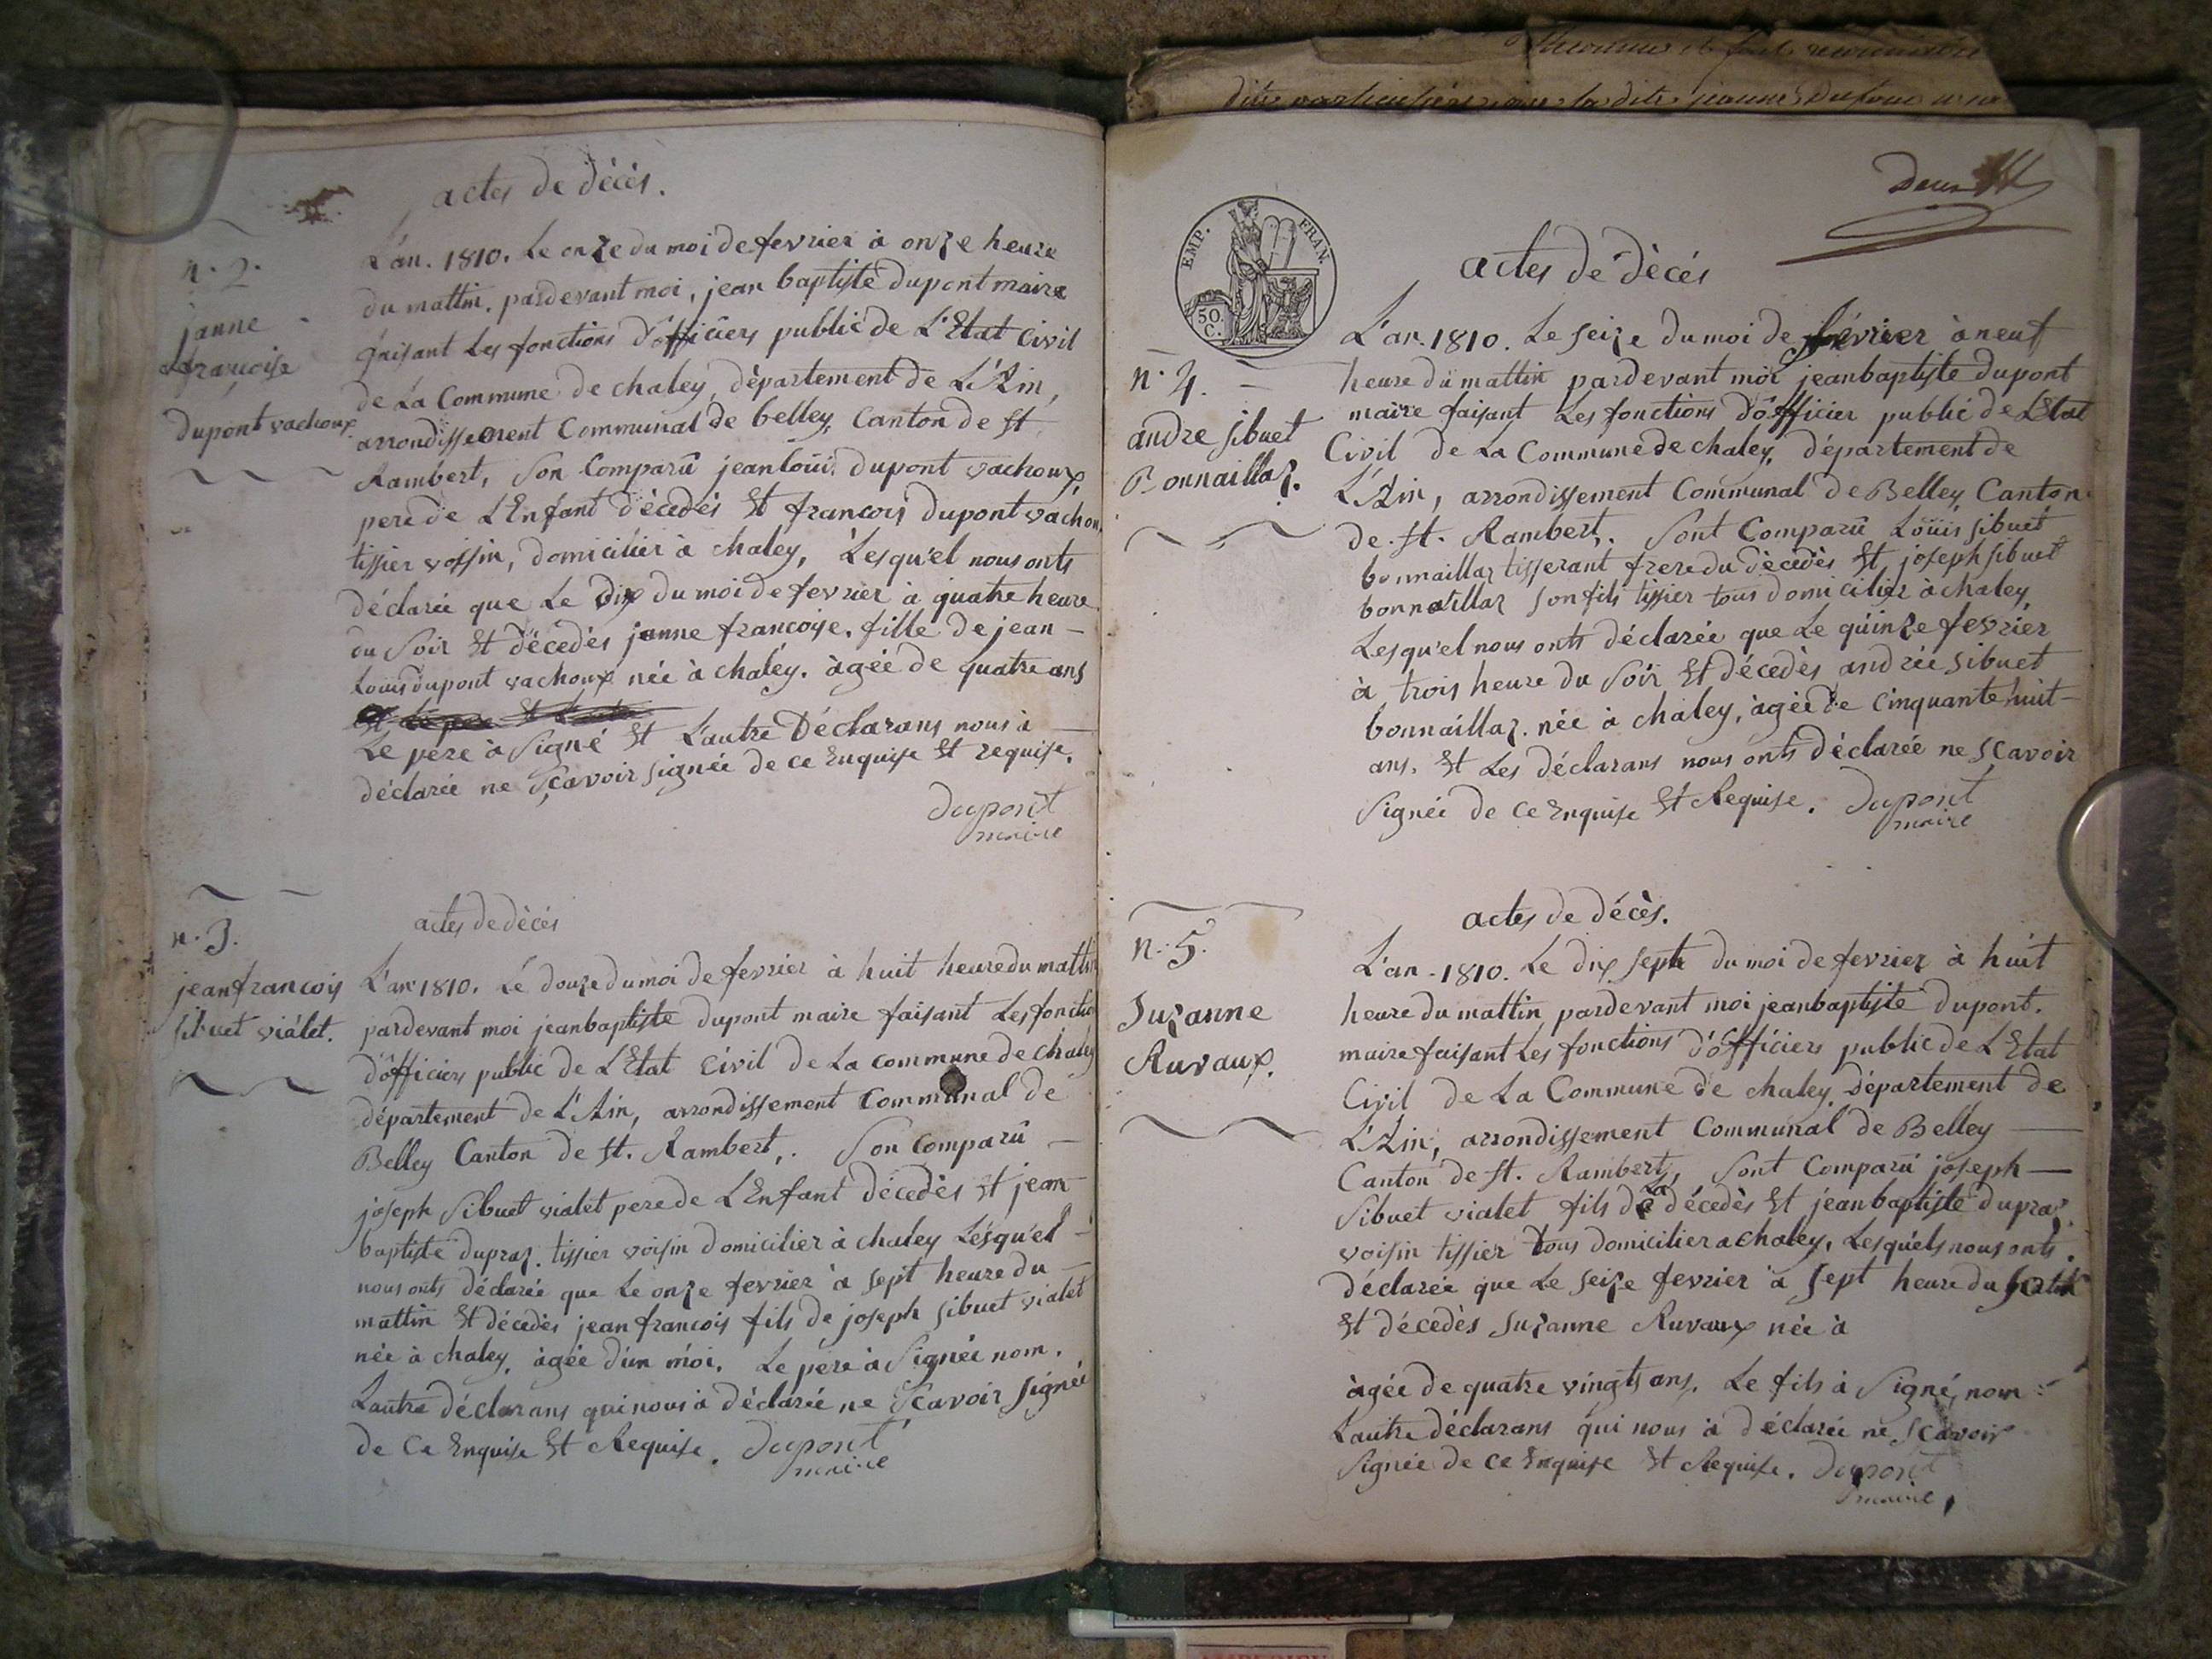 actes de décès.
n. 2.
janne
francoise
dupont vachoux
L'an. 1810. Le onze du moi de fevrier à onze heure
du mattin. pardevant moi, jean baptiste dupont maire
faisant Les fonctions d'officiers public de L'Etat Civil
de La Commune de chaley, département de L'Ain,
arrondissement Communal de belley, Canton de St
Rambert, Son Comparû jean loüis dupont vachoux,
pere de L'Enfant décedés Et francois dupont vachoux
tissier voissin, domicilier à chaley, Lesqu'el nous onts
déclarée que Le Dix du moi de fevrier à quatre heure
du Soir Et décedès janne francoise. fille de jean-
Loüis dupont vachoux née à chaley. àgée de quatre ans
Le pere à Signé Et L'autre Déclarans nous à
déclarée ne Scavoir signée de ce Enquise Et requise.
Dupont
maire
n. 3.
jean francois
sibuet viâlet.
actes de décés
L'an 1810. Le douze du moi de fevrier à huit heure du mattin
pardevant moi jean baptiste dupont maire faisant Les fonctio
d'officiers public de L'Etat Civil de La commune de chaley
département de L'Ain, arrondissement Communal de
Belley Canton de St. Rambert,. Son Comparû
joseph Sibuet vialet pere de L'Enfant décedès Et jean
baptiste dupraz. tissier voisin domicilier à chaley Lésqu'el
nous onts déclarée que Le onze fevrier à sept heure du
mattin Et décedès jean francois fils de joseph sibuet vialet
née à chaley, àgée d'ún mói. Le pere à Signée nom.
L'autre déclarans qui nous à déclarée ne Scavoir signée
de Ce Enquise Et Requise. Dupont
maire
EMP. FRAN.
50. C.
actes de décés
n. 4.
andre sibuet
Bonnaillaz.
L'an. 1810. Le seize du moi de février à neuf
heure du mattin pardevant moi jean baptiste dupont
maire faisant Les fonctions d'officier public de L'Etat
Civil de La Commune de chaley, département de
L'Ain, arrondissement Communal de Belley, Canton
de St. Rambert,. Sont Comparû Loüis sibuet
bonnaillaz tisserant frere du décedès Et joseph sibuet
bonnaillaz son fils tissier tous domicilier à chaley
Lesqu'el nous onts déclarée que Le quinze fevrier
à trois heure du Soir Et décedès andrée sibuet
bonnaillaz. née à chaley, àgée de Cinquante huit-
ans. Et Les déclarans nous onts déclarée ne Scavoir
Signée de Ce Enquise Et Requise. Dupont
maire
n. 5.
Suzanne
Ruvaux.
actes de décès.
L'an. 1810. Le dix sept du moi de fevrier à huit
heure du mattin pardevant moi jean baptiste dupont.
maire faisant Les fonctions d'officiers public de L'Etat
Civil de La Commune de chaley. département de
L'Ain, arrondissement Communal de Belley
Canton de St. Rambert, Sont Comparû joseph
Sibuet vialet fils de La décedès Et jean baptiste dupraz
voisin tissier tous domicilier a chaley. Lesquéls nous onts.
déclarée que Le seize fevrier à sept heure du
Et décedès Suzanne Ruvaux née à
àgée de quatre vingts ans. Le fils à Signé, nom
L'autre déclarans qui nous à déclarée ne Scavoir
Signée de ce Enquise Et Requise. Dupont
maire,